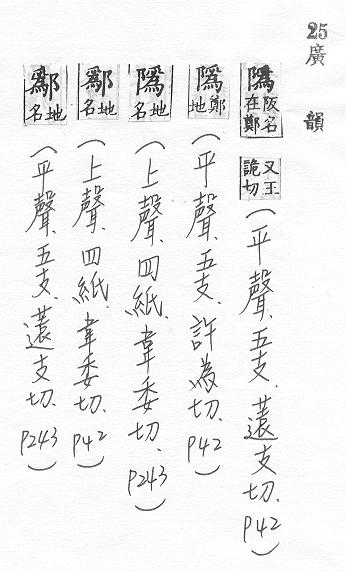 25 廣韻
隝 阪名在鄭 又王詭切 (平聲、五支、薳支切、P42)
隝 鄭地 (平聲、五支、許為切、P42)
隝 地名 (上聲、四紙、韋委切、P243)
鄬 地名 (上聲、四紙、韋委切、P42)
鄬 地名 (平聲、五支、薳支切、P243)